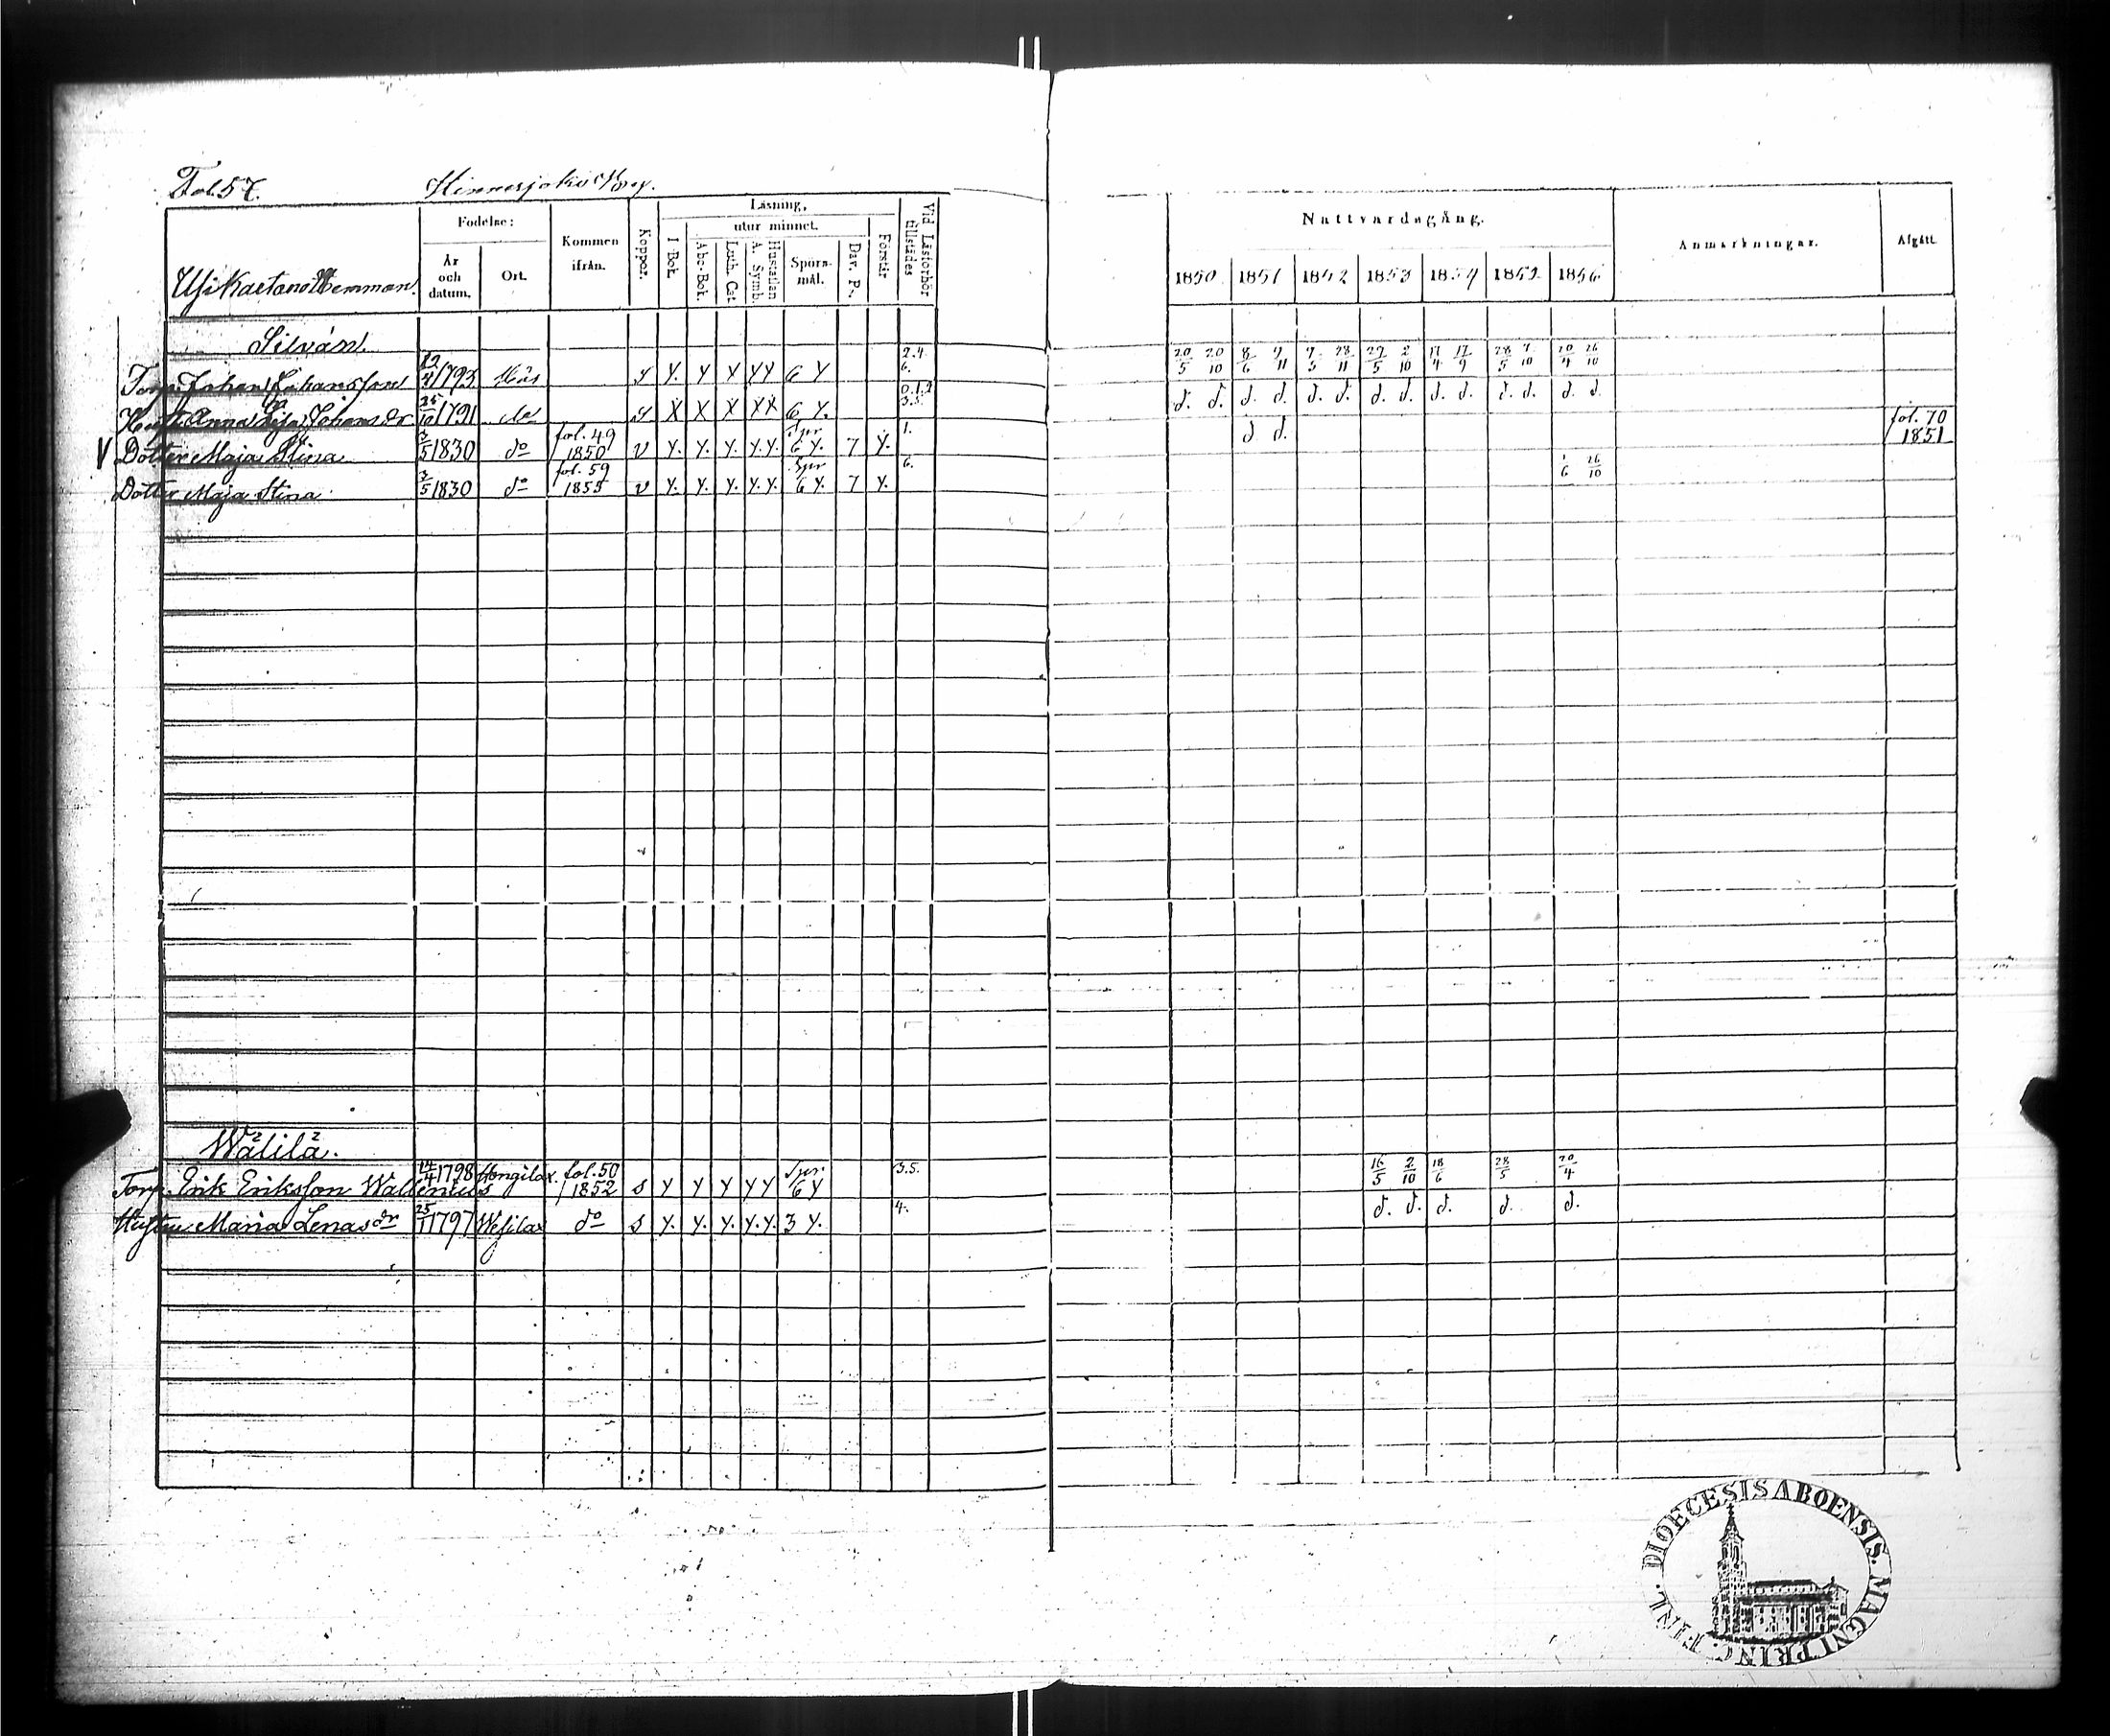 Fol. 57. Hinnerjoki By.
Usikartano Hemman.
Födelse:
År och datum.
Ort.
Kommen ifrån.
Koppor.
Läsning,
utur minnet.
I Bok.
Abc-Bok.
Luth. Cat.
Hustaflan A. Symb.
Spörsmål.
Dav. Ps.
Förstår
Vid Läsförhör tillstädes
Nattvardsgång.
1850 1851 1852 1853 1854 1855 1856
Anmärkningar.
Afgått.
Silván
Torp. Johan Johansson 1793 y y. y y y y 6 y 2.4. 6. 20/5 20/10 8/6 9/11 28/11 29/5 2/10 17/4 17/9 28/5 7/10 20/4 26/10
Hust. Anna Johans dr 25/10 1791 do y x x x x x 6 y. 0.1.2 3.5. d. d. d. d. d. d. d. d. d. d. d. d. d. d.
V Dotter Maja Stina 3/5 1830 do fol. 49 1850 v y. y. y. y. y. Spr 6 y. 7 y. 1. d d. fol. 70 1851
Dotter Maja Stina 3/5 1830 do fol. 59 1855 v y. y. y. y. y. Spr 6 y. 7 y. 6. 26/10
Wälilä.
Torp. Erik Eriksson Wallenius 14/4 1798 Hongilax. fol. 50 1852 s y y y y y Spr. 6 y 3.5. 16/5 2/10 18/6 28/5 20/4
Hustru Maria Lenas dr 1797 do s y. y. y. y. y. 3 y. 4. d. d. d. d. d.
FINL. DIOECESIS ABOENSIS. MAGNI PRINC.